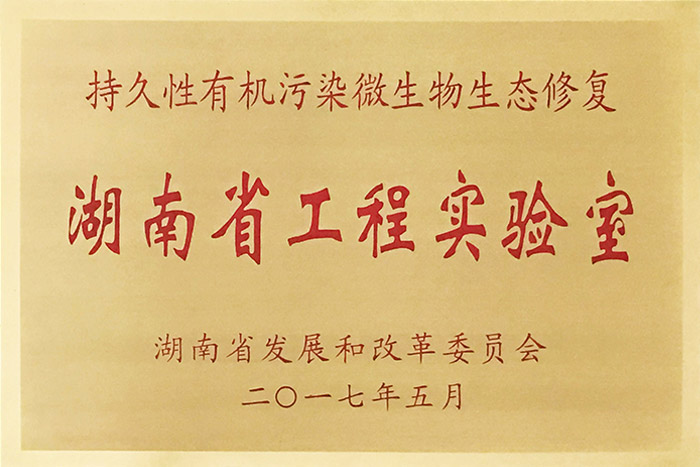 持久性有机污染微生物生态修复
湖南省工程实验室
湖南省发展和改革委员会
二〇一七年五月